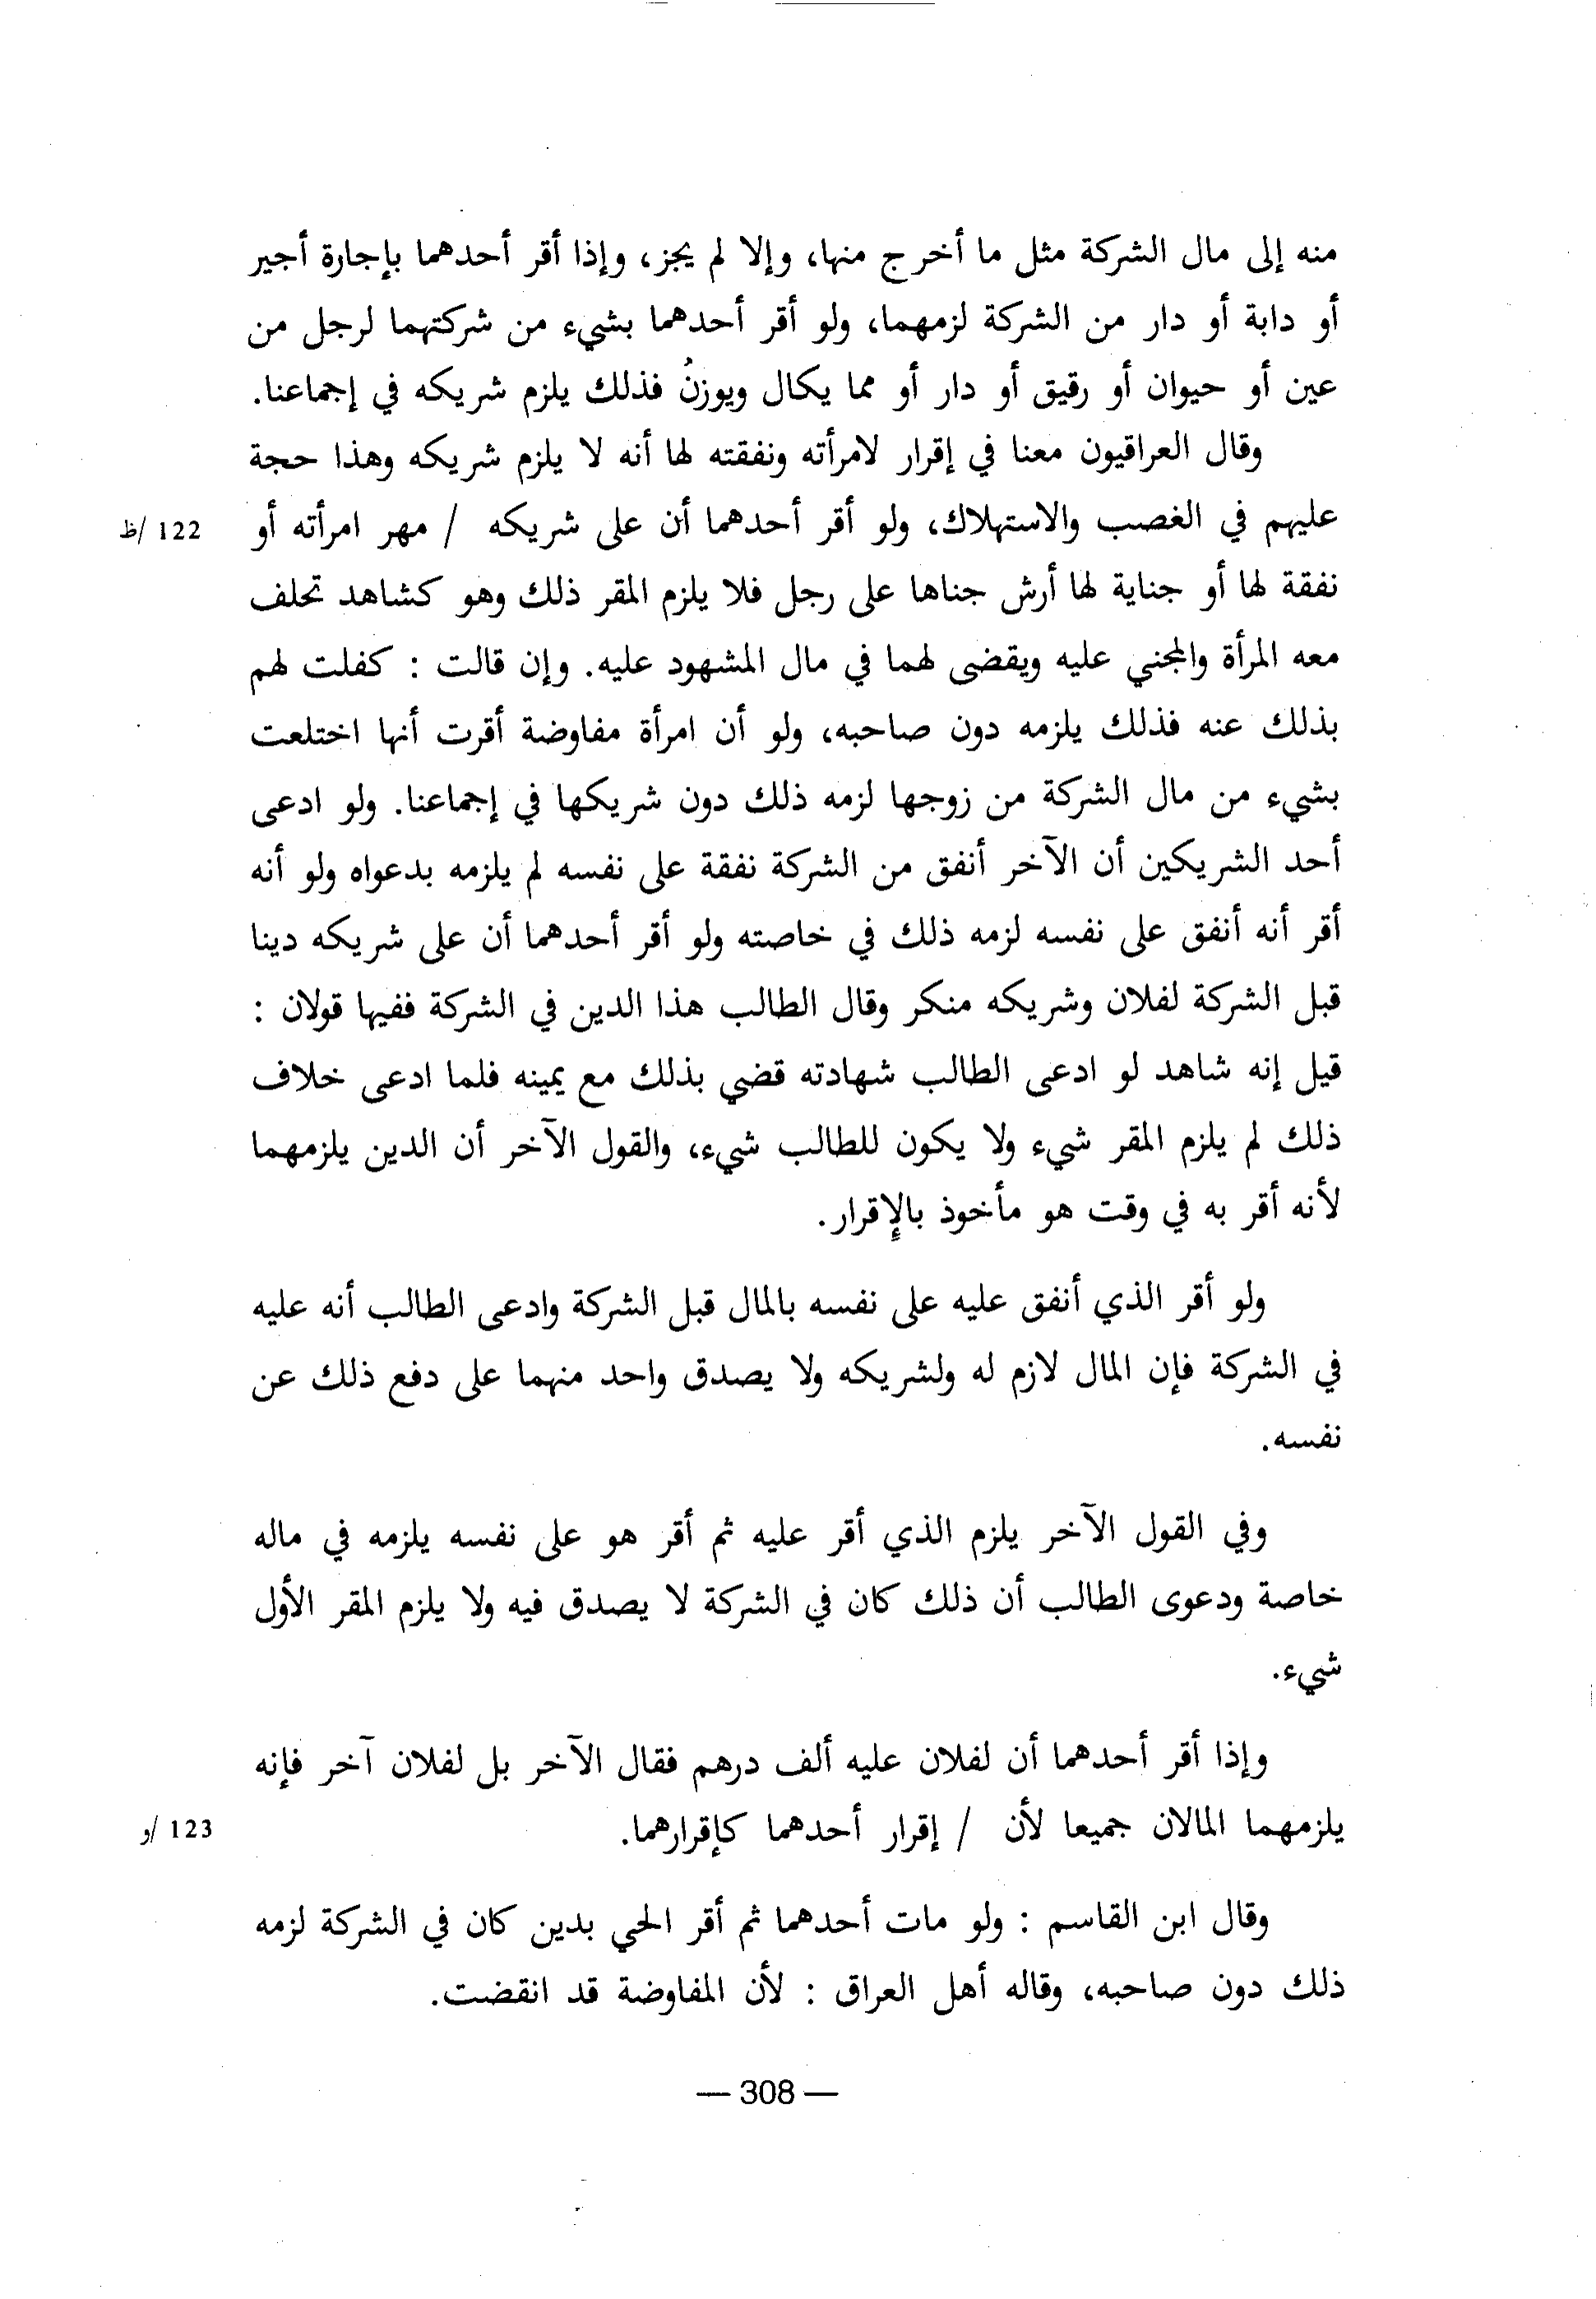 منه إلى مال الشركة مثل ما أخرج منها، وإلا لم يجز، وإذا أقر أحدهما بإجارة أجير
أو دابة أو دار من الشركة لزمهما، ولو أقر أحدهما بشيء من شركتهما لرجل من
عين أو حيوان أو رقيق أو دار أو مما يكال ويوزنُ فذلك يلزم شريكه في إجماعنا.
وقال العراقيون معنا في إقرار لامرأته ونفقته لها أنه لا يلزم شريكه وهذا حجة
عليهم في الغصب والاستهلاك، ولو أقر أحدهما أن على شريكه / مهر امرأته أو
122 /ظ
نفقة لها أو جناية لها أرش جناها على رجل فلا يلزم المقر ذلك وهو كشاهد تحلف
معه المرأة والمجني عليه ويقضى لهما في مال المشهود عليه. وإن قالت : كفلت لهم
بذلك عنه فذلك يلزمه دون صاحبه، ولو أن امرأة مفاوضة أقرت أنها اختلعت
بشيء من مال الشركة من زوجها لزمه ذلك دون شريكها في إجماعنا. ولو ادعى
أحد الشريكين أن الآخر أنفق من الشركة نفقة على نفسه لم يلزمه بدعواه ولو أنه
أقر أنه أنفق على نفسه لزمه ذلك في خاصته ولو أقر أحدهما أن على شريكه دينا
قبل الشركة لفلان وشريكه منكر وقال الطالب هذا الدين في الشركة ففيها قولان :
قيل إنه شاهد لو ادعى الطالب شهادته قضي بذلك مع يمينه فلما ادعى خلاف
ذلك لم يلزم المقر شيء ولا يكون للطالب شيء، والقول الآخر أن الدين يلزمهما
لأنه أقر به في وقت هو مأخوذ بالإقرار.
ولو أقر الذي أنفق عليه على نفسه بالمال قبل الشركة وادعى الطالب أنه عليه
في الشركة فإن المال لازم له ولشريكه ولا يصدق واحد منهما على دفع ذلك عن
نفسه.
وفي القول الآخر يلزم الذي أقر عليه ثم أقر هو على نفسه يلزمه في ماله
خاصة ودعوى الطالب أن ذلك كان في الشركة لا يصدق فيه ولا يلزم المقر الأول
شيء.
وإذا أقر أحدهما أن لفلان عليه ألف درهم فقال الآخر بل لفلان آخر فإنه
يلزمهما المالان جميعا لأن / إقرار أحدهما كإقرارهما.
123 /و
وقال ابن القاسم : ولو مات أحدهما ثم أقر الحي بدين كان في الشركة لزمه
ذلك دون صاحبه، وقاله أهل العراق : لأن المفاوضة قد انقضت.
— 308 —